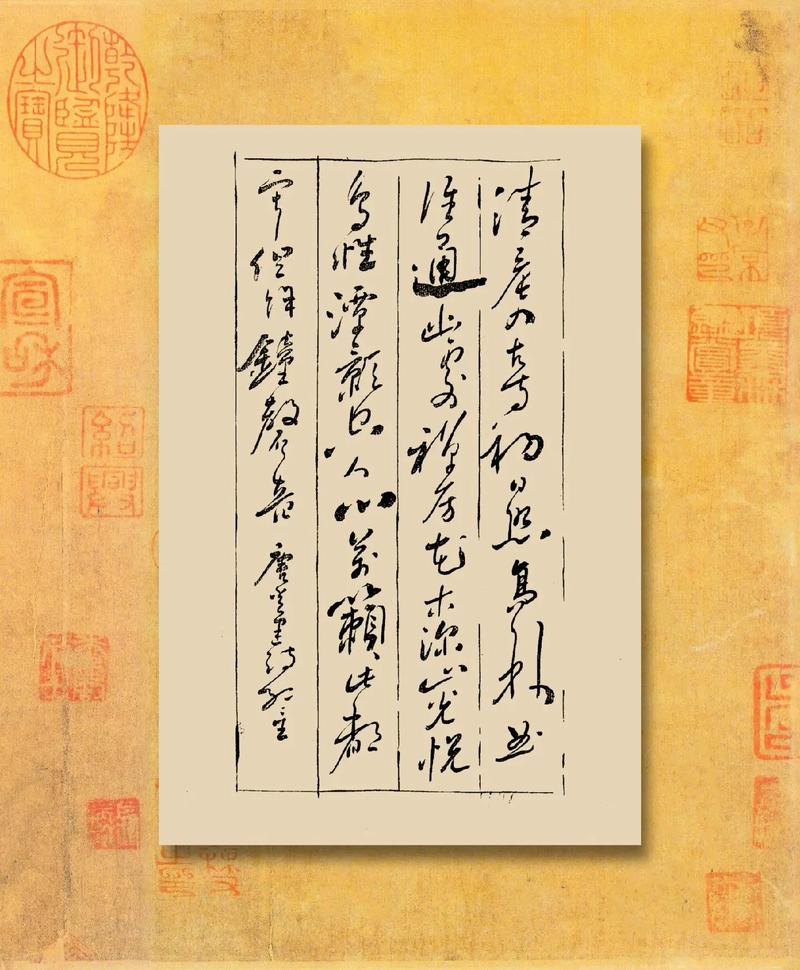 清晨入古寺初日照高林曲
径通幽處禅房花木深山光悦
鳥性潭影空人心萬籟此都
寂但餘鐘磬音 唐常建詩
乾隆御覽之寶
紹興